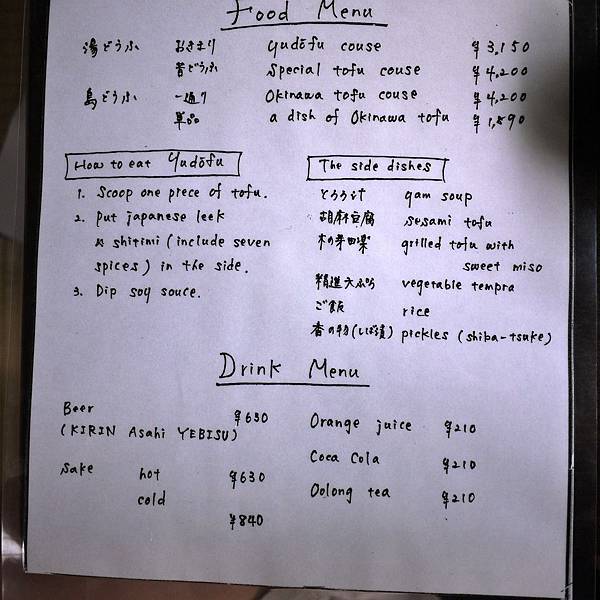 Food Menu
湯どうふ おきまり yudōfu couse ¥3,150
昔どうふ special tofu couse ¥4,200
島どうふ 一通り Okinawa tofu couse ¥4,200
単品 a dish of Okinawa tofu ¥1,890
How to eat yudōfu
1. Scoop one piece of tofu.
2. put japanese leek
& shitimi (include seven
spices) in the side.
3. Dip soy souce.
The side dishes
とろろ汁 yam soup
胡麻豆腐 sesami tofu
木の芽田楽 grilled tofu with
sweet miso
精進天ぷら vegetable tempra
ご飯 rice
香の物(しば漬) pickles (shiba-tsuke)
Drink Menu
Beer ¥630
(KIRIN Asahi YEBISU)
sake hot ¥630
cold
¥840
Orange juice ¥210
Coca Cola ¥210
Oolong tea ¥210